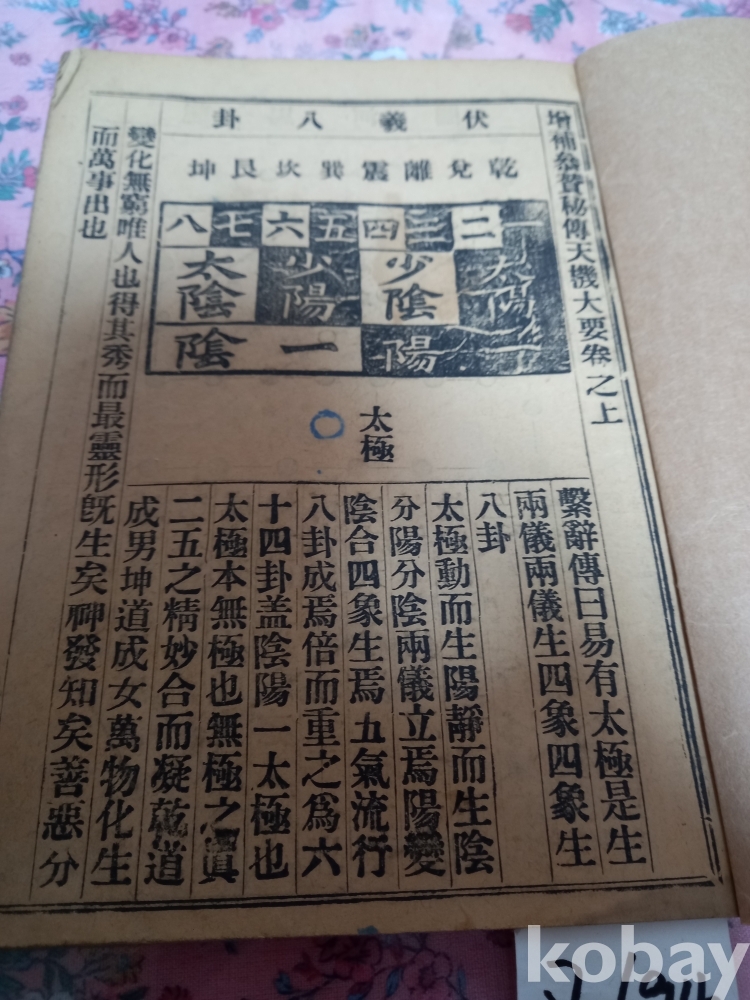 增補參贊秘傳天機大要卷之上
伏羲八卦
乾兌離震巽坎艮坤
一二三四五六七八
太陽 少陰 少陽 太陰
陽 一 陰
太極
繫辭傳曰易有太極是生
兩儀兩儀生四象四象生
八卦
太極動而生陽靜而生陰
分陽分陰兩儀立焉陽變
陰合四象生焉五氣流行
八卦成焉倍而重之爲六
十四卦盖陰陽一太極也
太極本無極也無極之眞
二五之精妙合而凝乾道
成男坤道成女萬物化生
變化無窮唯人也得其秀而最靈形旣生矣神發知矣善惡分
而萬事出也
kobay